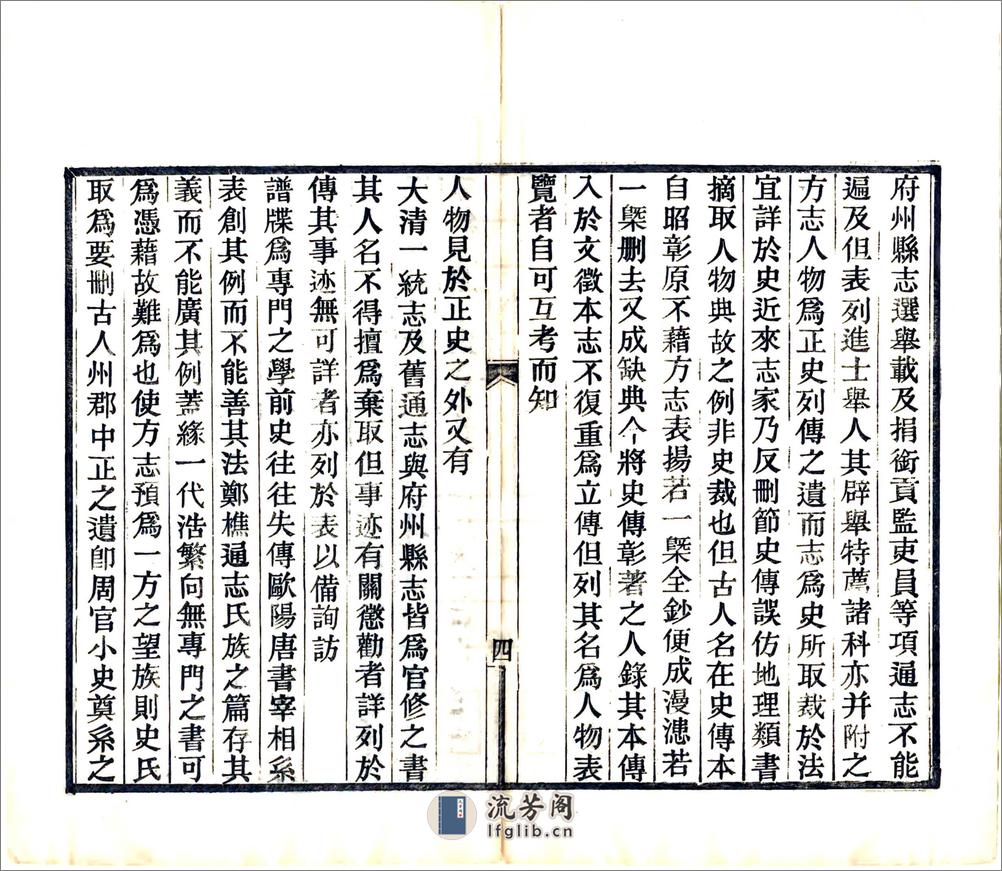 府州縣志選舉載及捐銜貢監吏員等項通志不能
遍及但表列進士舉人其辟舉特薦諸科亦并附之
方志人物爲正史列傳之遺而志爲史所取裁於法
宜詳於史近來志家乃反刪節史傳誤仿地理類書
摘取人物典故之例非史裁也但古人名在史傳本
自昭彰原不藉方志表揚若一槩全鈔便成漫漶若
一槩刪去又成缺典今將史傳彰著之人錄其本傳
入於文徵本志不復重爲立傳但列其名爲人物表
覽者自可互考而知
四
人物見於正史之外又有
大清一統志及舊通志與府州縣志皆爲官修之書
其人名不得擅爲棄取但事迹有關懲勸者詳列於
傳其事迹無可詳者亦列於表以備詢訪
譜牒爲專門之學前史往往失傳歐陽唐書宰相系
表創其例而不能善其法鄭樵通志氏族之篇存其
義而不能廣其例蓋緣一代浩繁向無專門之書可
爲憑藉故難爲也使方志預爲一方之望族則史氏
取爲要刪古人州郡中正之遺卽周官小史奠系之
流芳阁
lfglib.cn